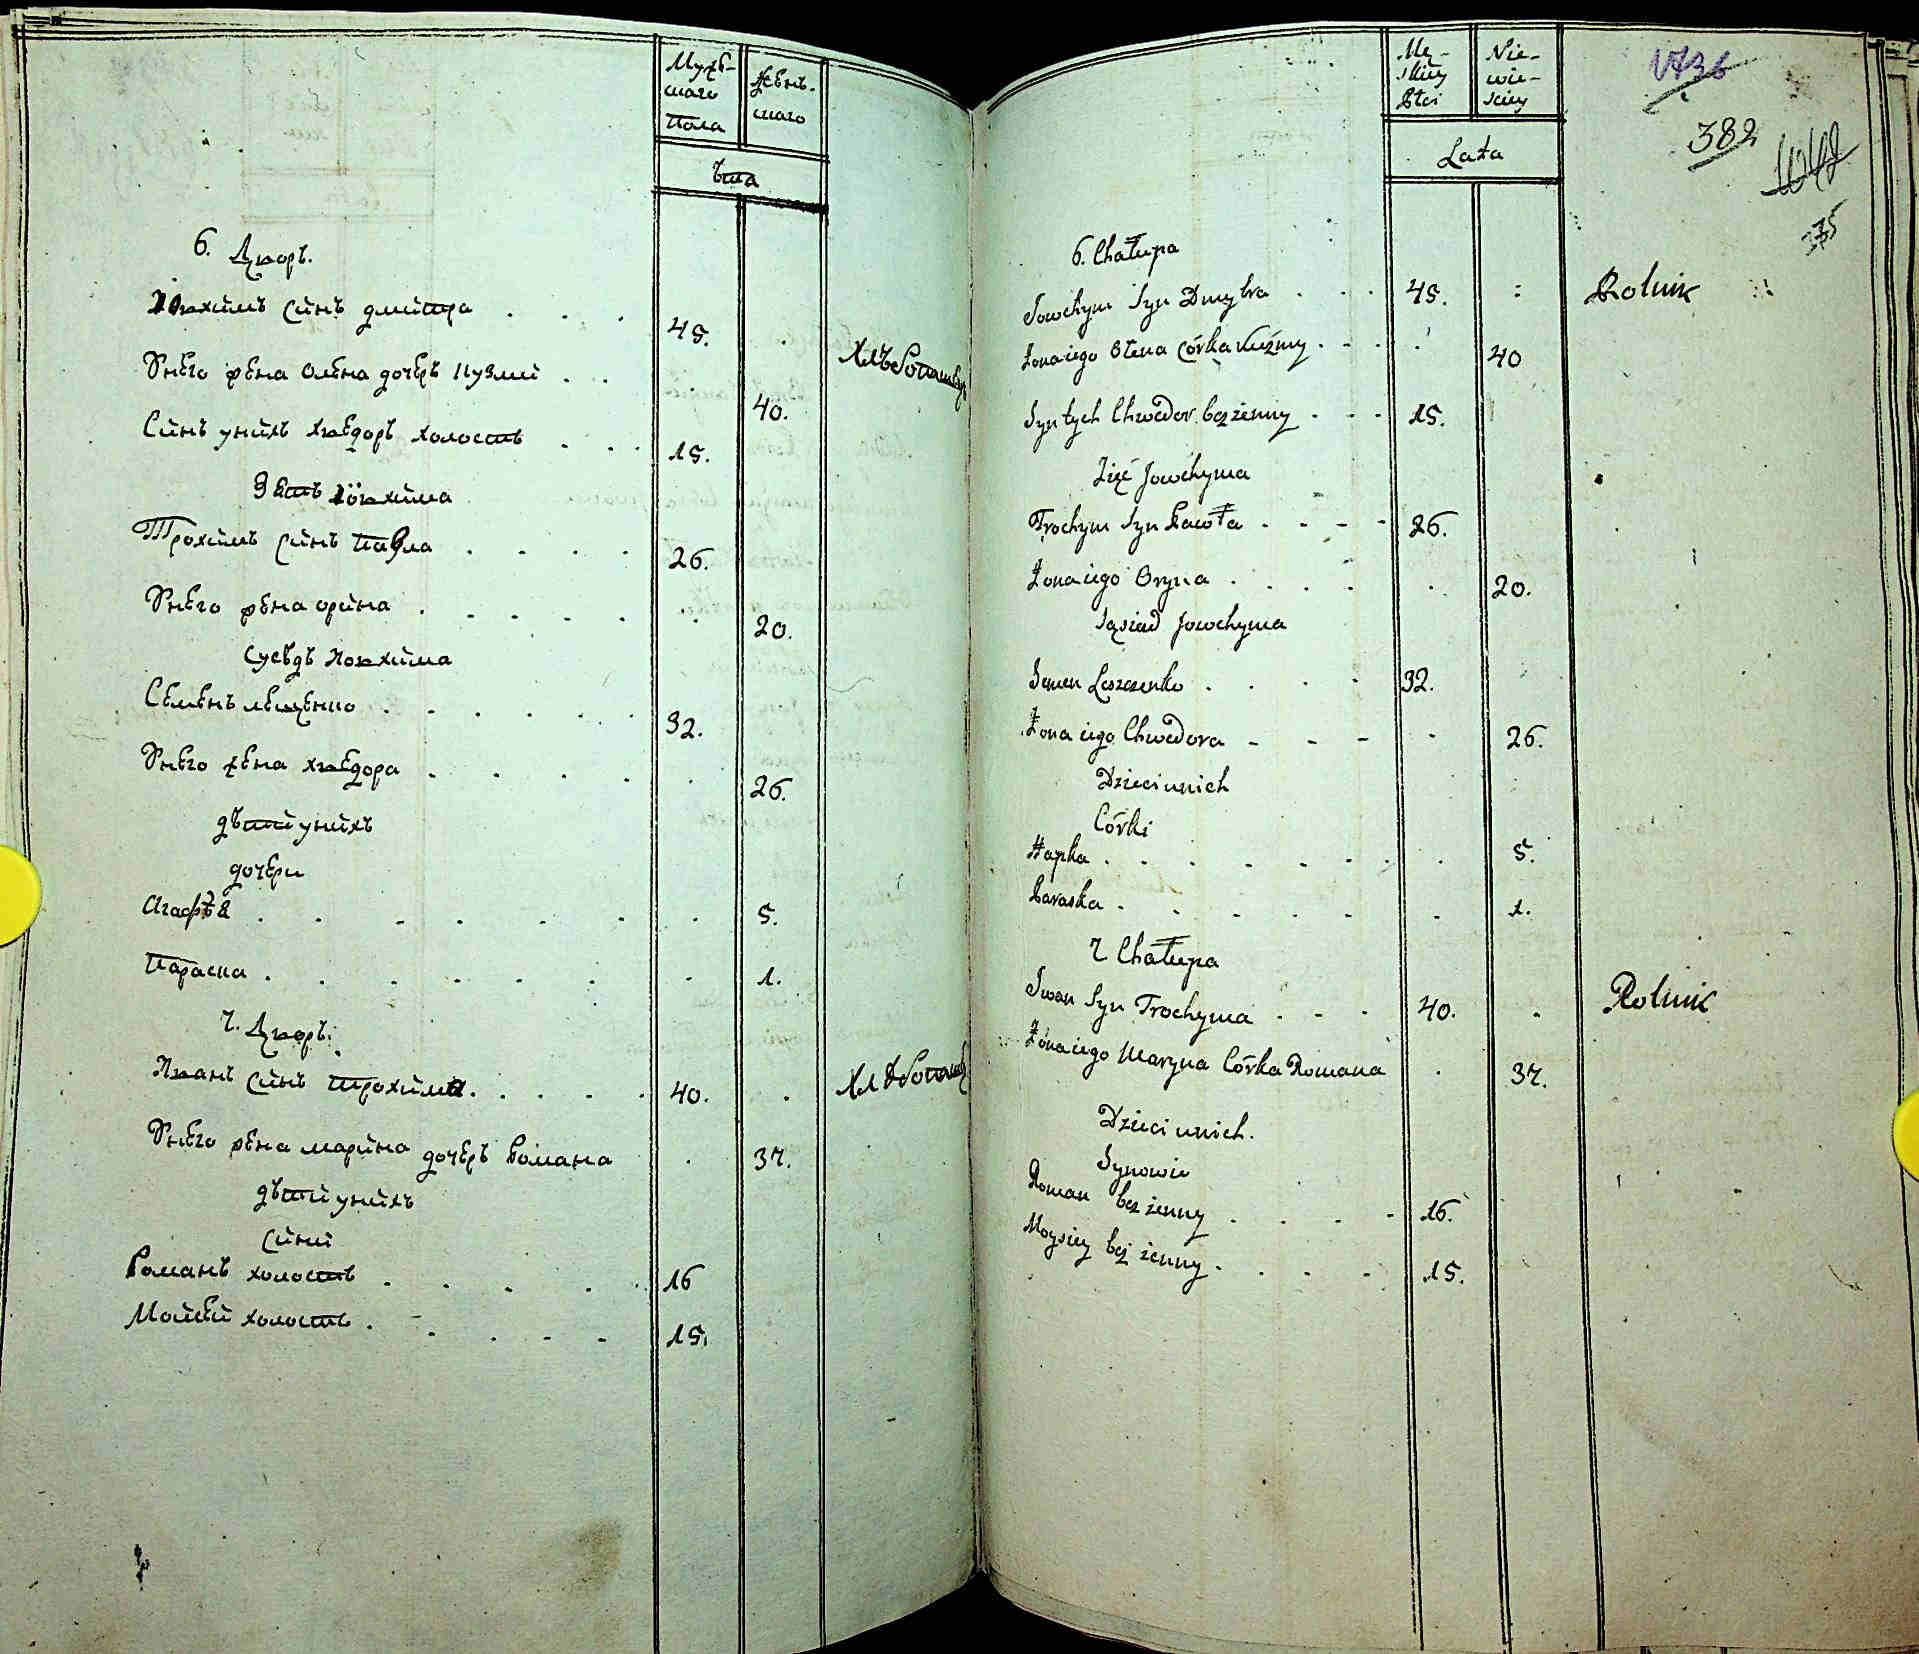 Мужескаго Пола
Женскаго
Лѣта
6. Дворъ.
Іовхимъ Синъ Дмитра . . . 45.
Хлѣбопашецъ
Унего жена Олена дочерь Кузмы . . 40.
Синъ унихъ Хведоръ холостъ . . . 15.
Зять Іовхима
Трохимъ синъ Павла . . . . 26.
Унего жена орина . . . . . . 20.
Сусѣдъ Іовхима
Семенъ лещенко . . . . . . 32.
Унего жена Хведора . . . . . 26.
дѣти унихъ
дочери
Агафѣя . . . . . . . 5.
Параска . . . . . . . 1.
7. Дворъ.
Иванъ Синъ трохима . . . . 40. .
Хлѣбопашец
Унего жена марина дочерь Романа . 37.
дѣти унихъ
Сины
Романъ холостъ . . . . 16
Мойсей холостъ . . . . . 15.
Mę-
skiey
Płci
Nie-
wie-
sciey
Lata
1736
382
1048
375
6. Chałupa
Jowchym Syn Dmytra . . . 45. :
Rolnik
Żona iego Ołena Córka Kuźmy . . . . 40
Syn tych Chwedor bezżenny . - - 15.
Zięć Jowchyma
Trochym Syn Pawła . - - - 26.
Żona iego Oryna . . . . . 20.
Sąsiad Jowchyma
Semen Leszczenko . . . . 32.
Żona iego Chwedora - - - - 26.
Dzieci unich
Córki
Hapka . . . . . . . . 5.
Paraska . . . . . . 1.
7 Chałupa
Iwan Syn Trochyma . - . 40. .
Rolnik
Żona iego Maryna Córka Romana . 37.
Dzieci unich.
Synowie
Roman bez żenny . . . - 16.
Moysiey beż żenny . . . . 15.